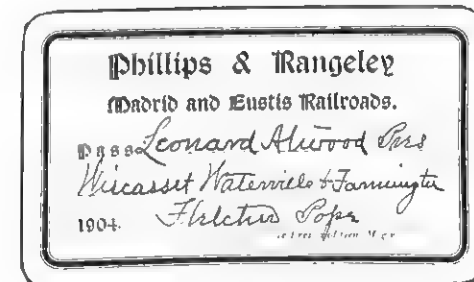 Phillips & Rangeley
Madrid and Eustis Railroads.
Pass Leonard Atwood Pres
Wiscasset Waterville & Farmington
1904. Fletcher Pope